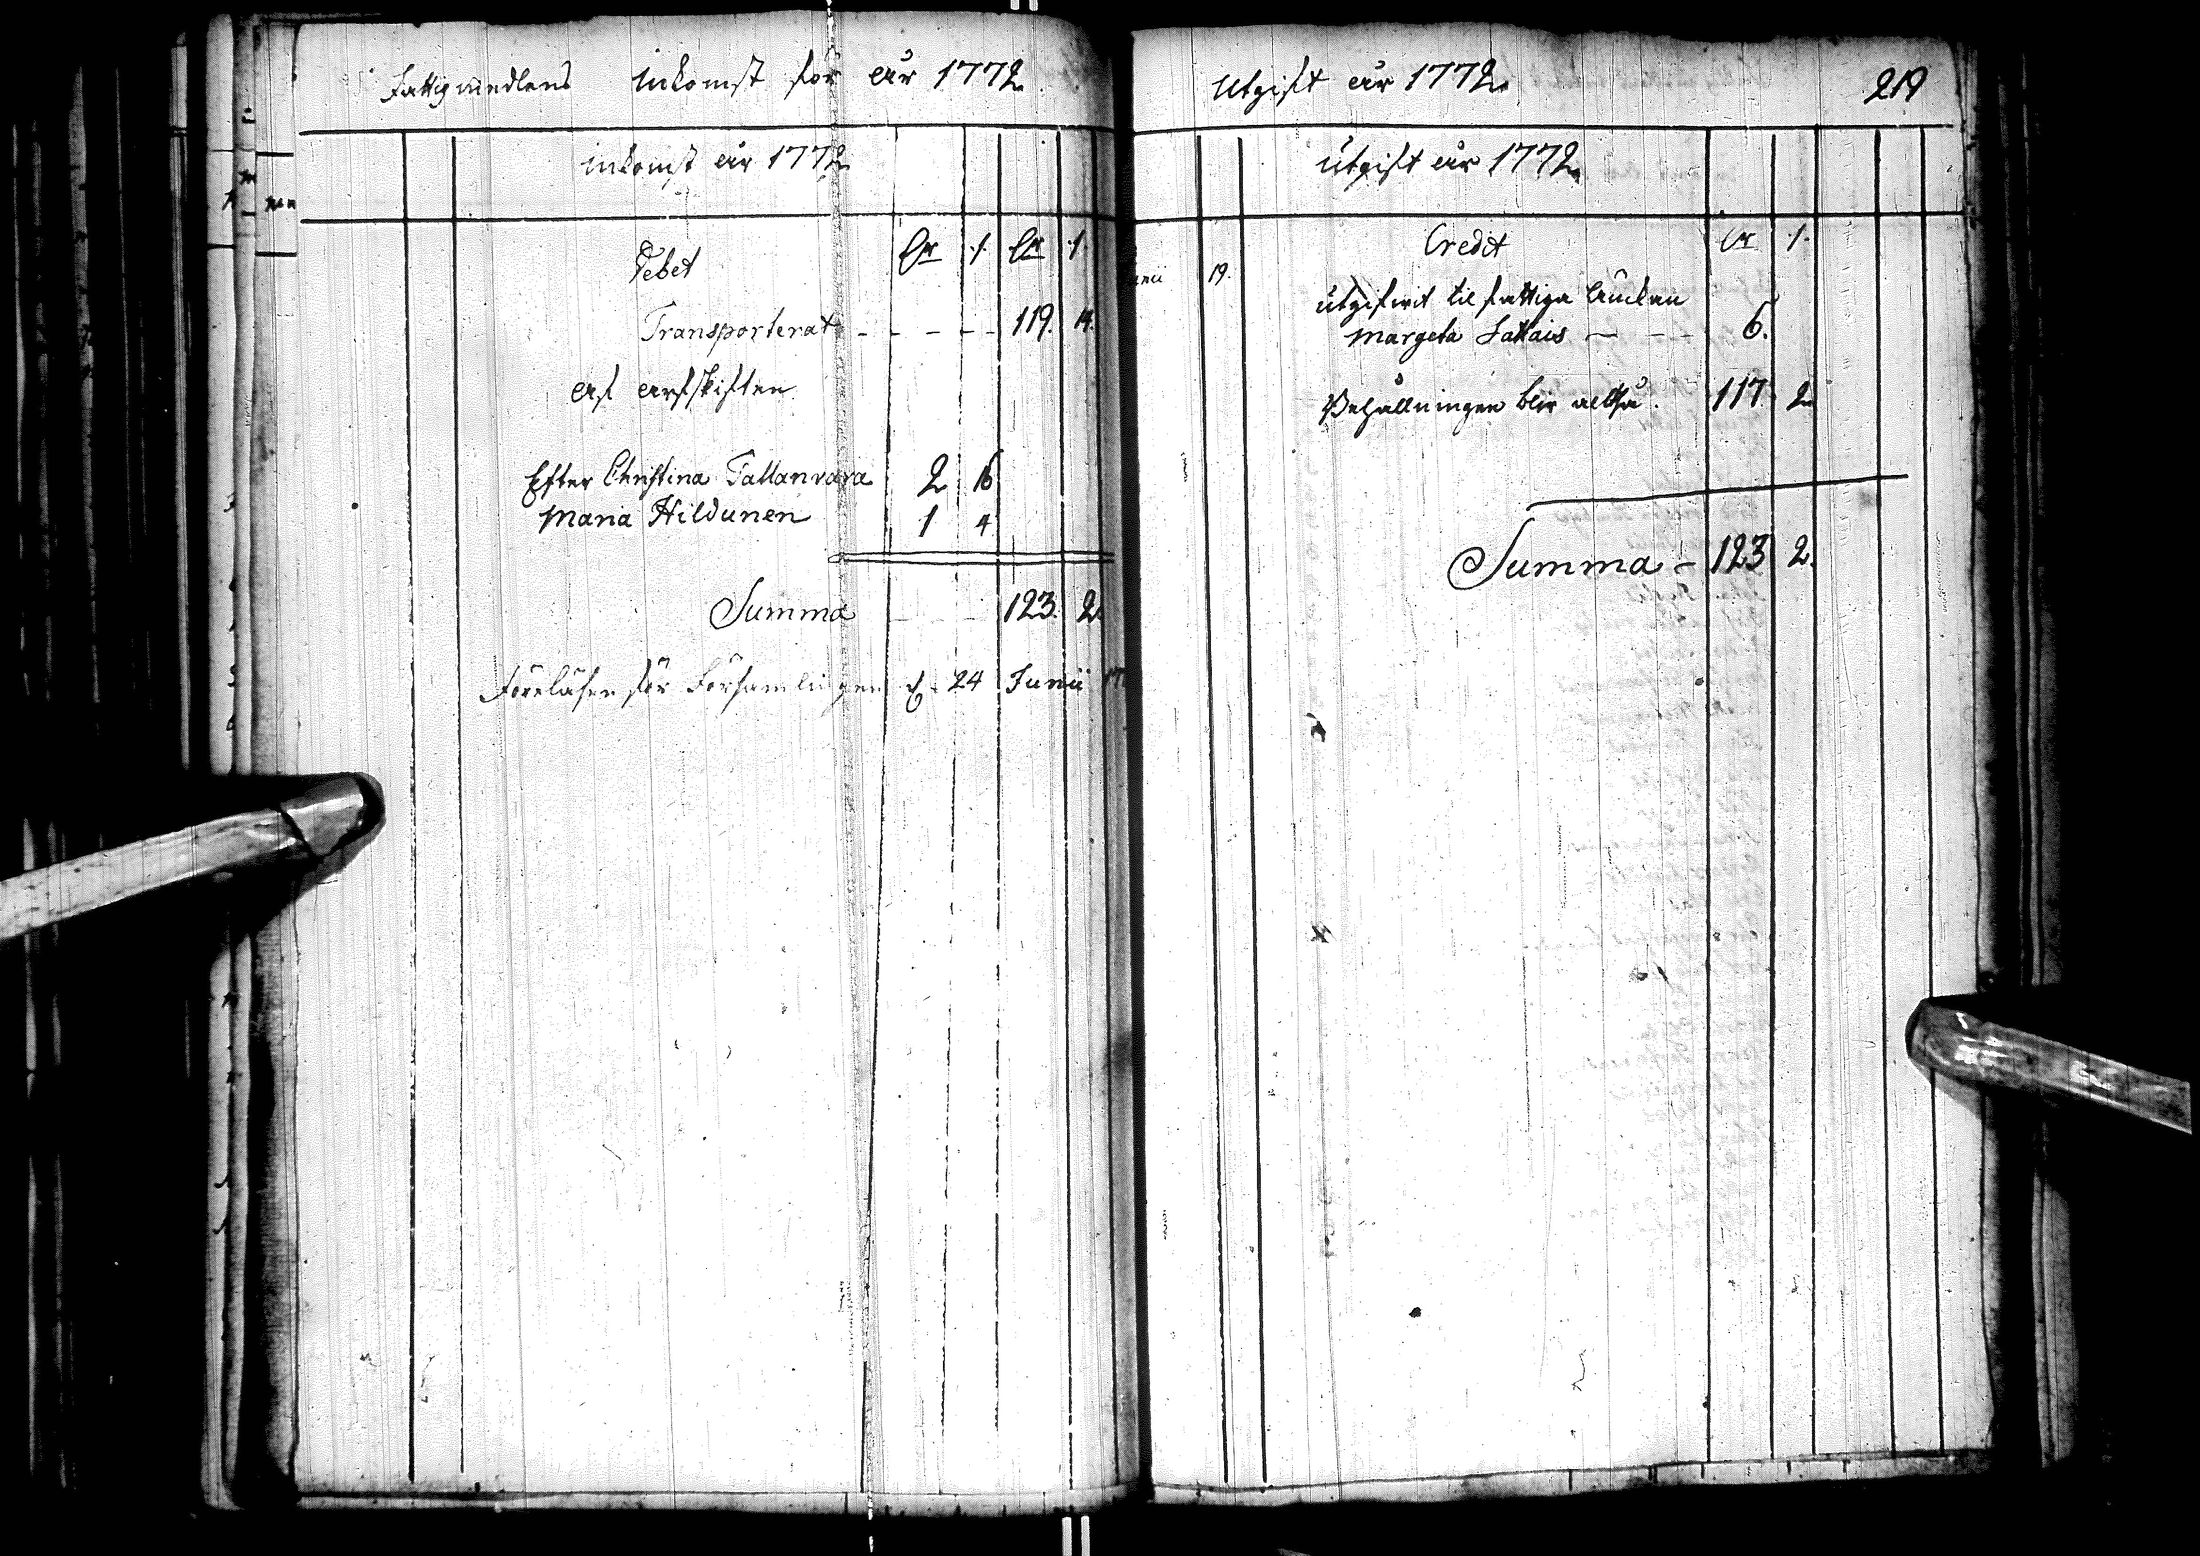 Fattigmedlens inkomst för år 1772
inkomst år 1772
Debet
Transporterat - - - - 119. 14.
af arfskiften
Efter Christina Tattanvara 2 16
Maria Hildunen 1 4
Summa - - 123. 2.
Föreläsen för Församlingen d. 24 Junii 17
Utgift år 1772 219
utgift år 1772
Credit
19.
utgifwit til fattiga
Margeta - - - 6.
Behållningen blir altså. 117 2
Summa - 123 2.